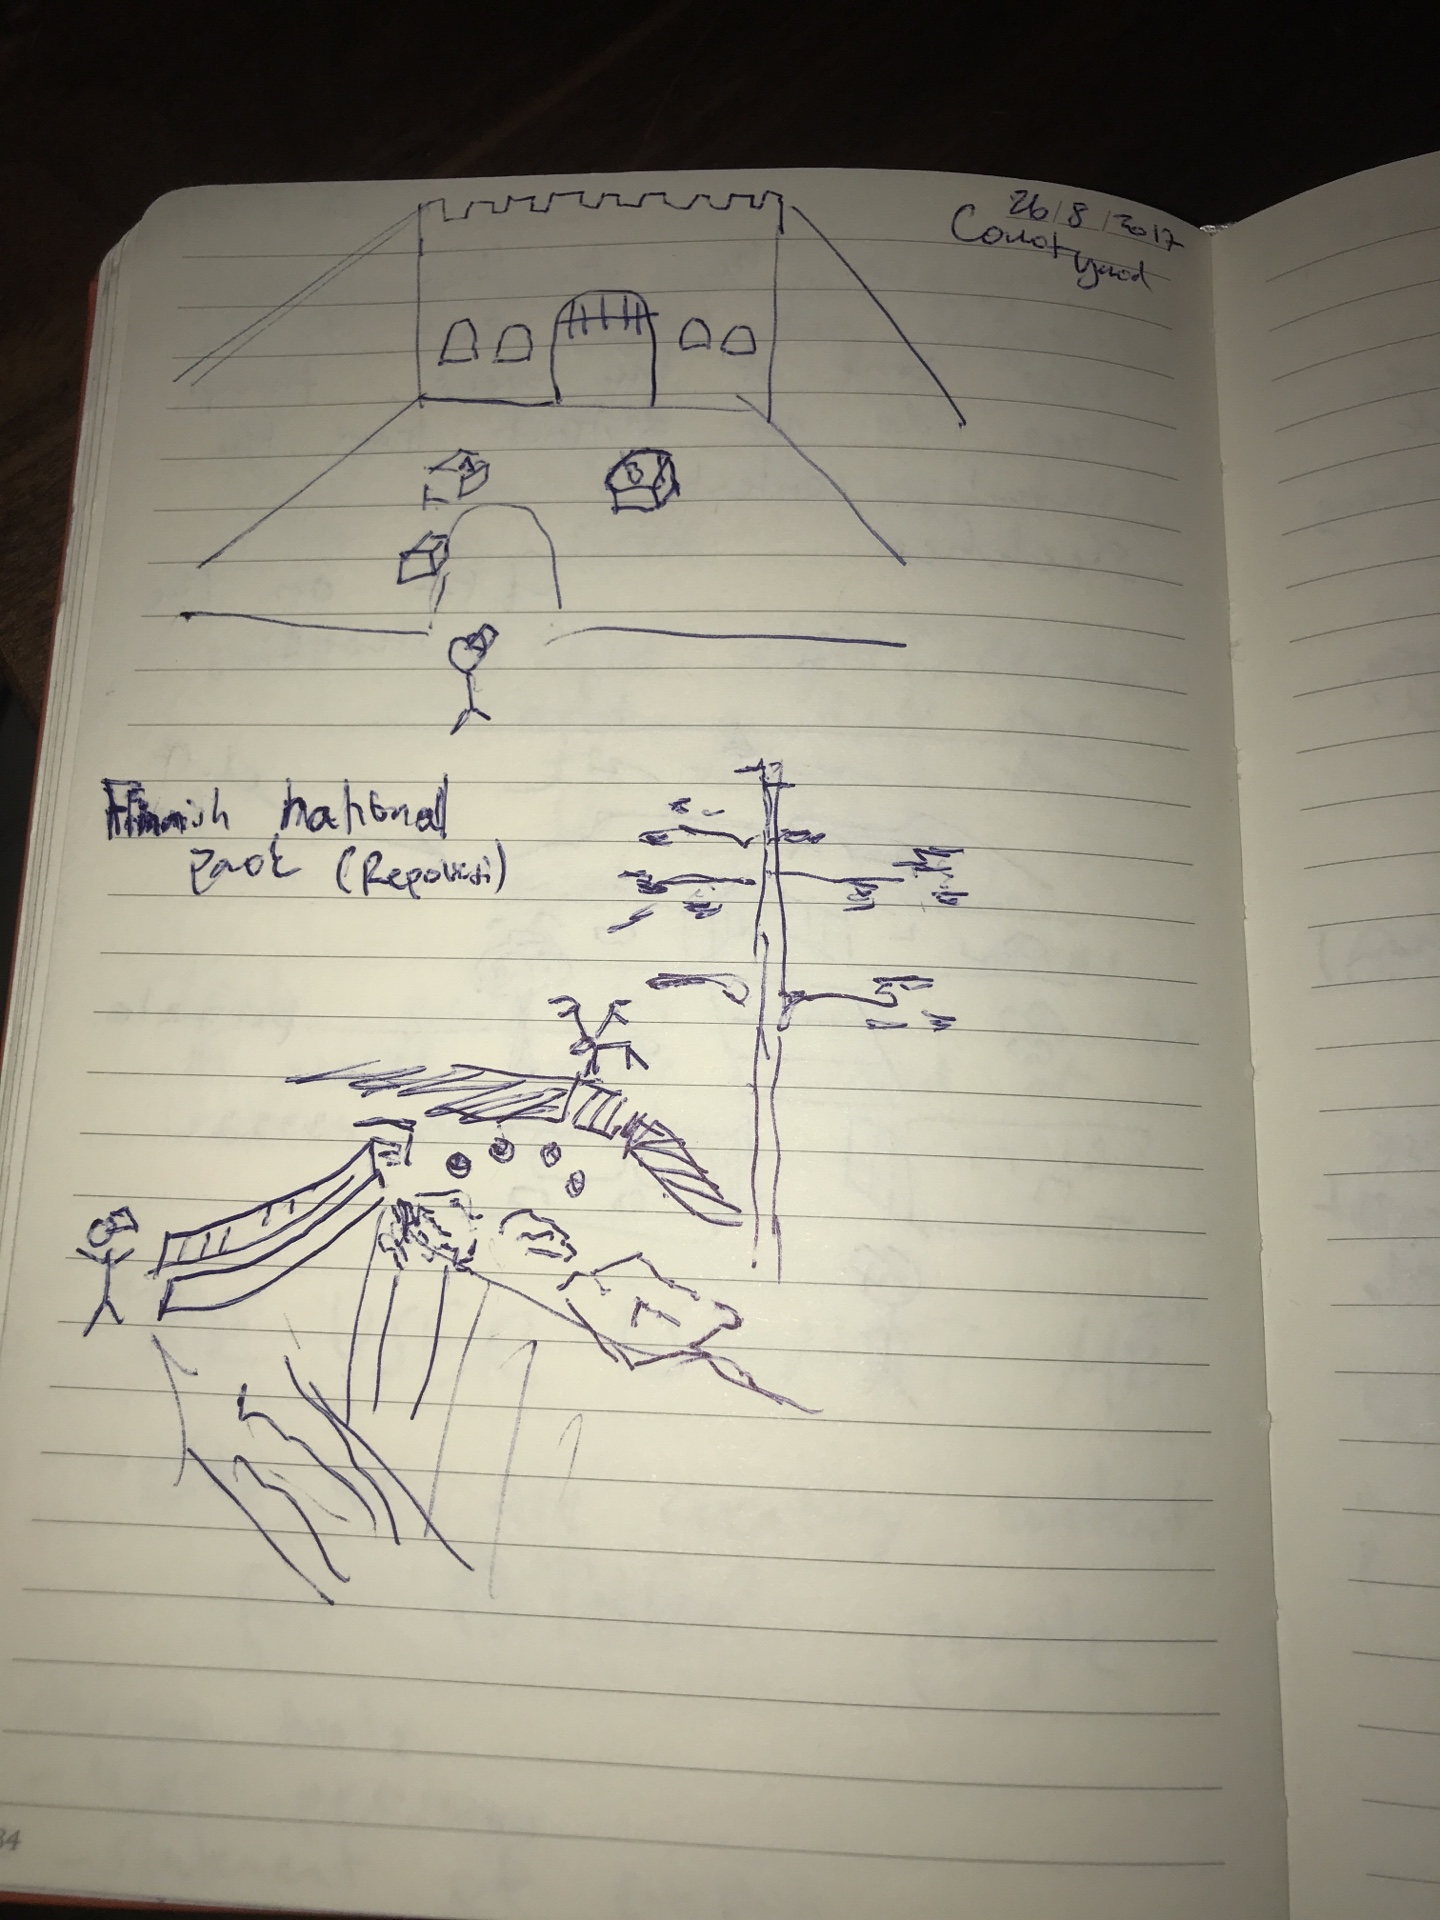 26/8/2017
Courtyard
Finnish national
park (Repovesi)
B
34